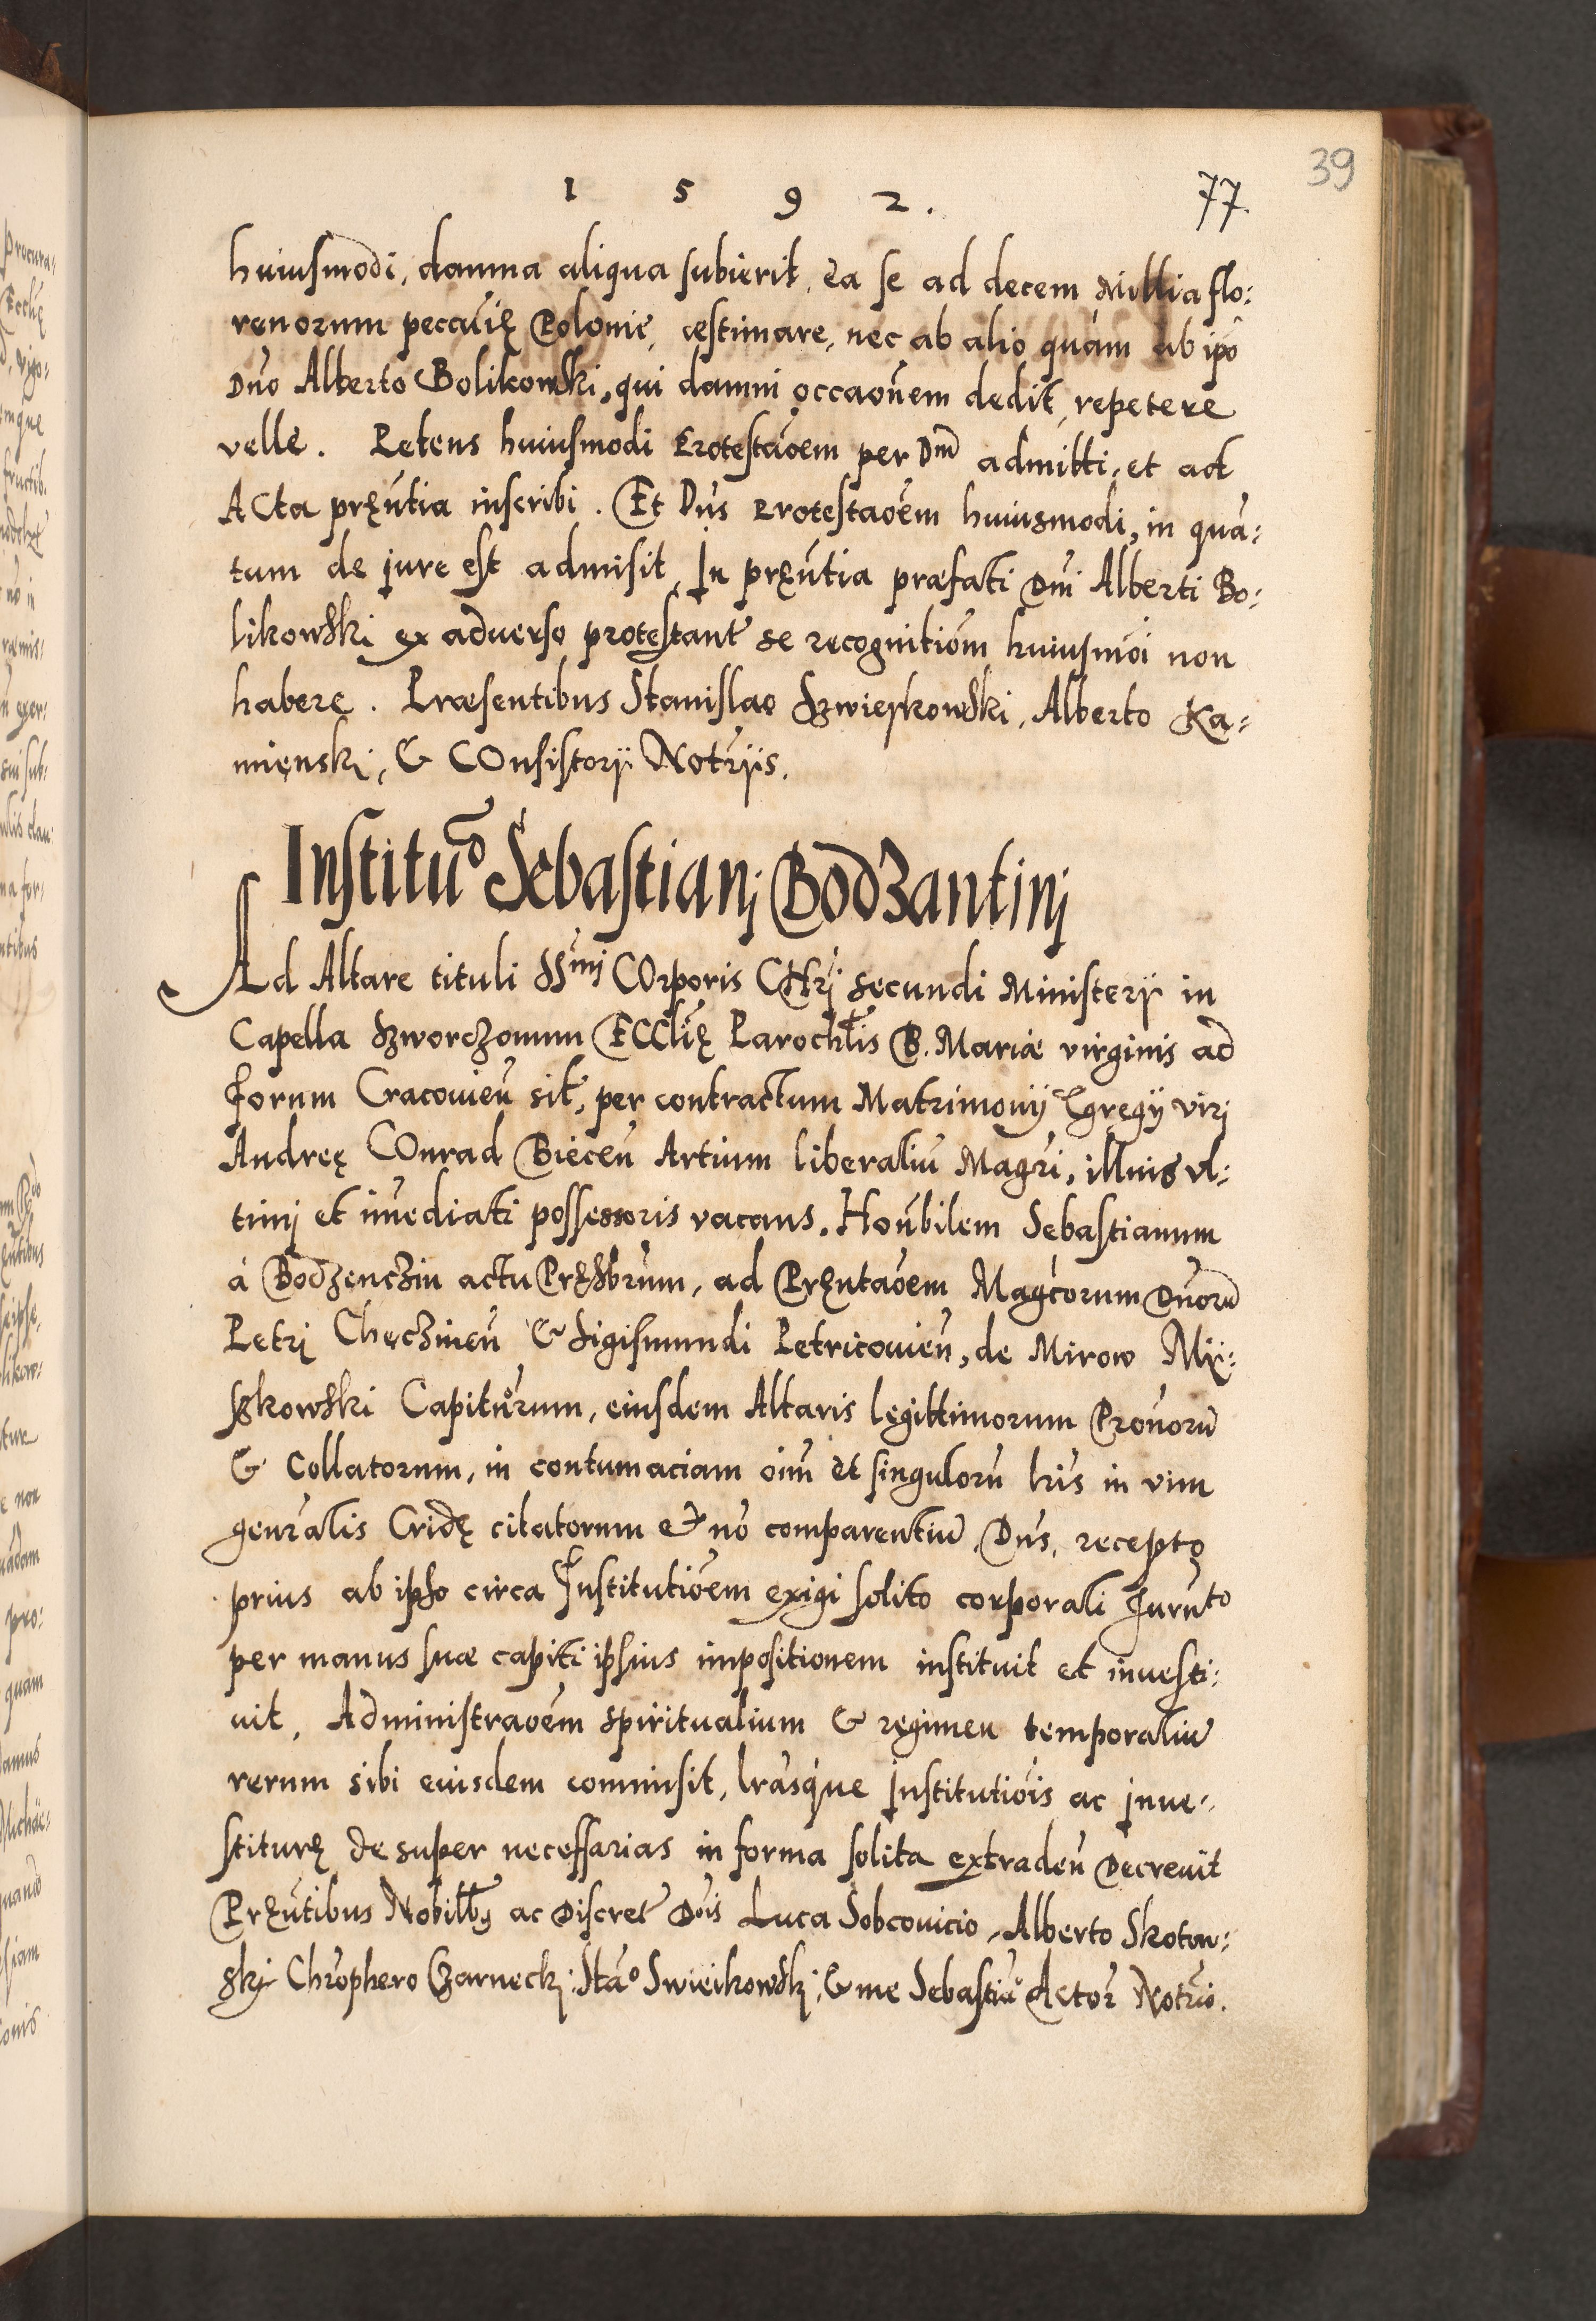 39
1 5 9 2.
77.
huiusmodi, damna aliqua subierit, ea se ad decem Millia flo:
renorum pecuię Polonic, æstimare, nec ab alio quàm ab ipō
Dno Alberto Bolikowski, qui damni occaoñem dedit, repetere
velle. Petens huiusmodi Protestaōem per Dnū admitti, et ad
ACta pręñtia inscribi. Et Dn̄s Protestaōem huiusmodi, in quā:
tum de jure est admisit, In pręñtia præfati Dn̄i Alberti Bo:
likowski ex aduerso protestant̄ se recognitiōm huiusmōi non
habere. Præsentibus Stanislao Szwieykowski, Alberto Ka:
mięnski, & COnsistorÿ Notr̄ÿs.
Institūo Sebastianj Bodzantinj
Ad Altare tituli SSmi COrporis CHr̄j secundi Ministerÿ in
Capella Szworczonum ECCl̄ię Parochl̄is B. Mariæ virginis ad
forum Cracouień sit̄, per contractum Matrimonÿ Egregÿ virj
Andreę COnrad Bieceń Artium liberaliū Magr̄i, illius vl:
timj et im̄ediati possessoris vacans. Hoñbilem Sebastianum
à Bodzenczin actu Pręsb̄rum, ad Pręntaōem Magcorum Dnorū
Petrj Chęczineń & Sigismundi Petricouień, de Mirow Mÿ:
szkowski Capituōrum, eiusdem Altaris legittimorum Pronorū
& Collatorum, in contumaciam oim̄ et singulorū lr̄is in vim
genr̄alis Cridę citatorum et nō comparentiū, Dn̄s, recepto
prius ab ipso circa Institutiōem exigi solito corporali Jurñto
per manus suæ capiti ipsius impositionem instituit et inuesti:
uit, Administraōem spiritualium & regimen temporaliū
rerum sibi eiusdem commisit, lr̄asque Institutiōis ac Inue:
stiturę desuper necessarias in forma solita extradeń Decreuit
Pręñtibus Nobilib₉ ac Discret̄ Dn̄is Luca Sobcouicio, Alberto Skotow:
skj Chr̄ophero Czarneckj, Stāo Swieikowskj, & me Sebastiāo Actor̄ Notr̄io.